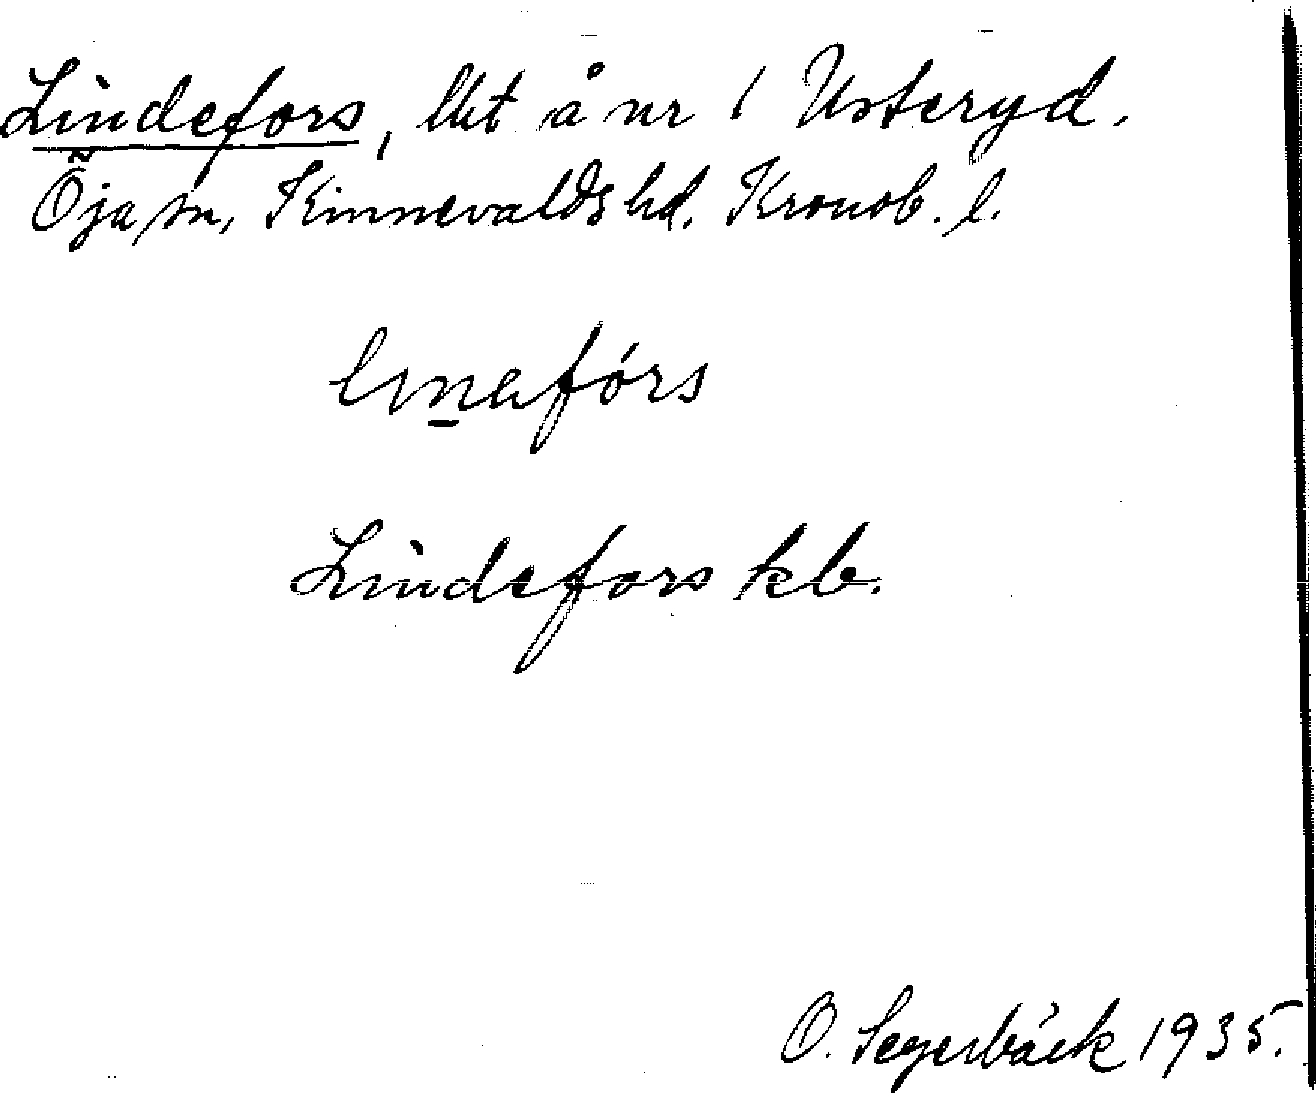 Lindefors, lht å nr 1 Usteryd.
Öja sn, Kinnevalds hd. Kronob. l.
Lindefors kb.
O. Segerbäck 1935.